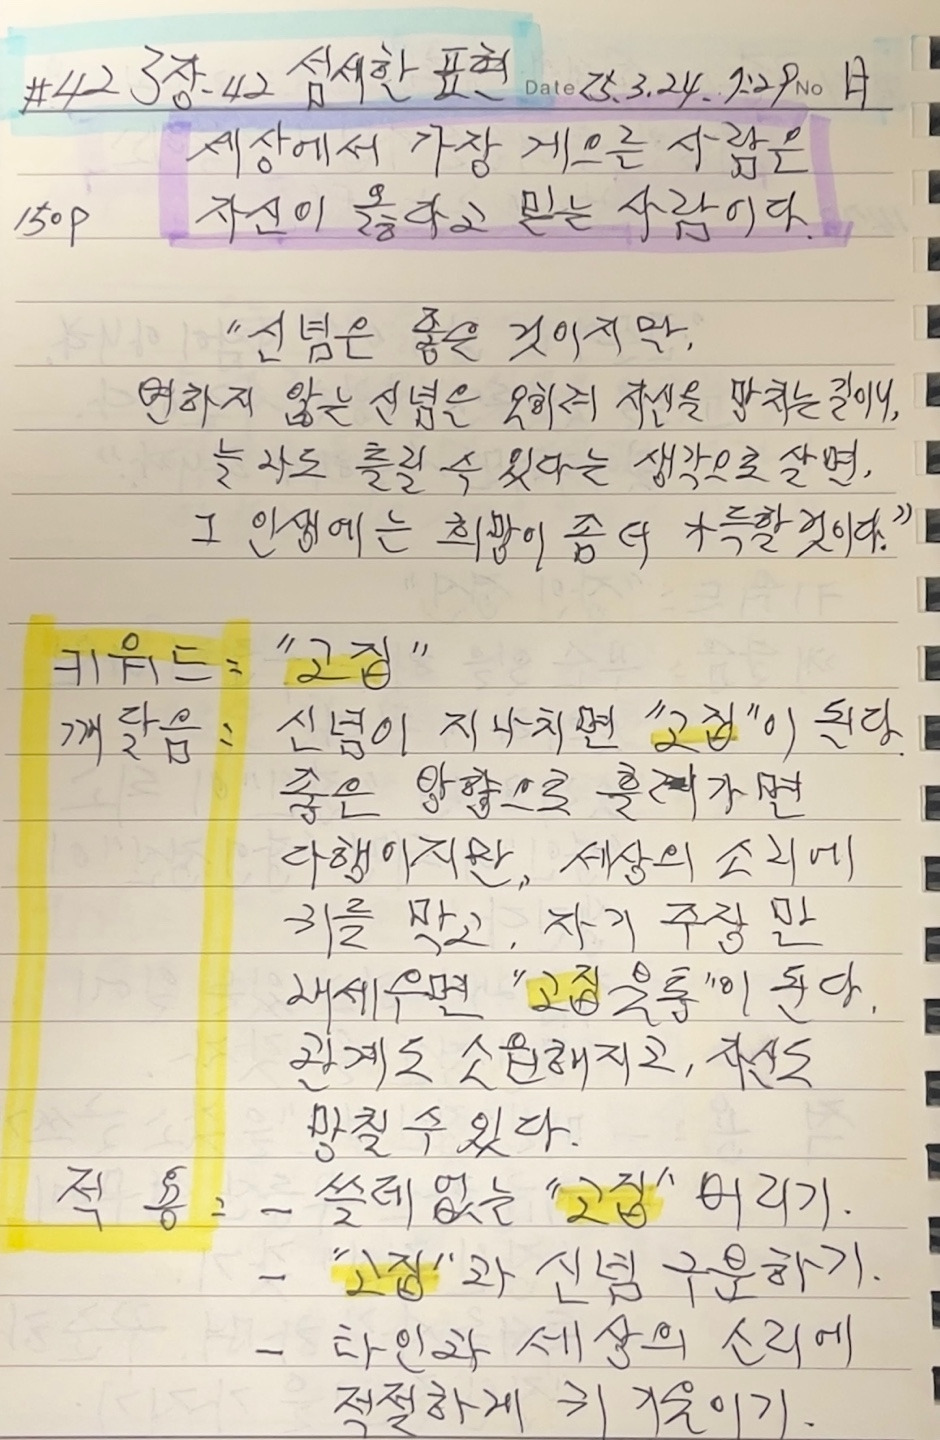 #42 3장-42 섬세한 표현 Date 25.3.24. 9:29 No 月
세상에서 가장 게으른 사람은
150P 자신이 옳다고 믿는 사람이다.
"신념은 좋은 것이지만,
변하지 않는 신념은 오히려 자신을 망치는 길이니,
늘 나도 틀릴 수 있다는 생각으로 살면,
그 인생에는 희망이 좀 더 가득할 것이다."
키워드: "고집"
깨달음: 신념이 지나치면 "고집"이 된다.
좋은 방향으로 흘러가면
다행이지만, 세상의 소리에
귀를 막고, 자기 주장 만
내세우면 "고집불통"이 된다.
관계도 소원해지고, 자신도
망칠 수 있다.
적 용: - 쓸데 없는 "고집" 버리기.
- "고집"과 신념 구분하기.
- 타인과 세상의 소리에
적절하게 귀 기울이기.